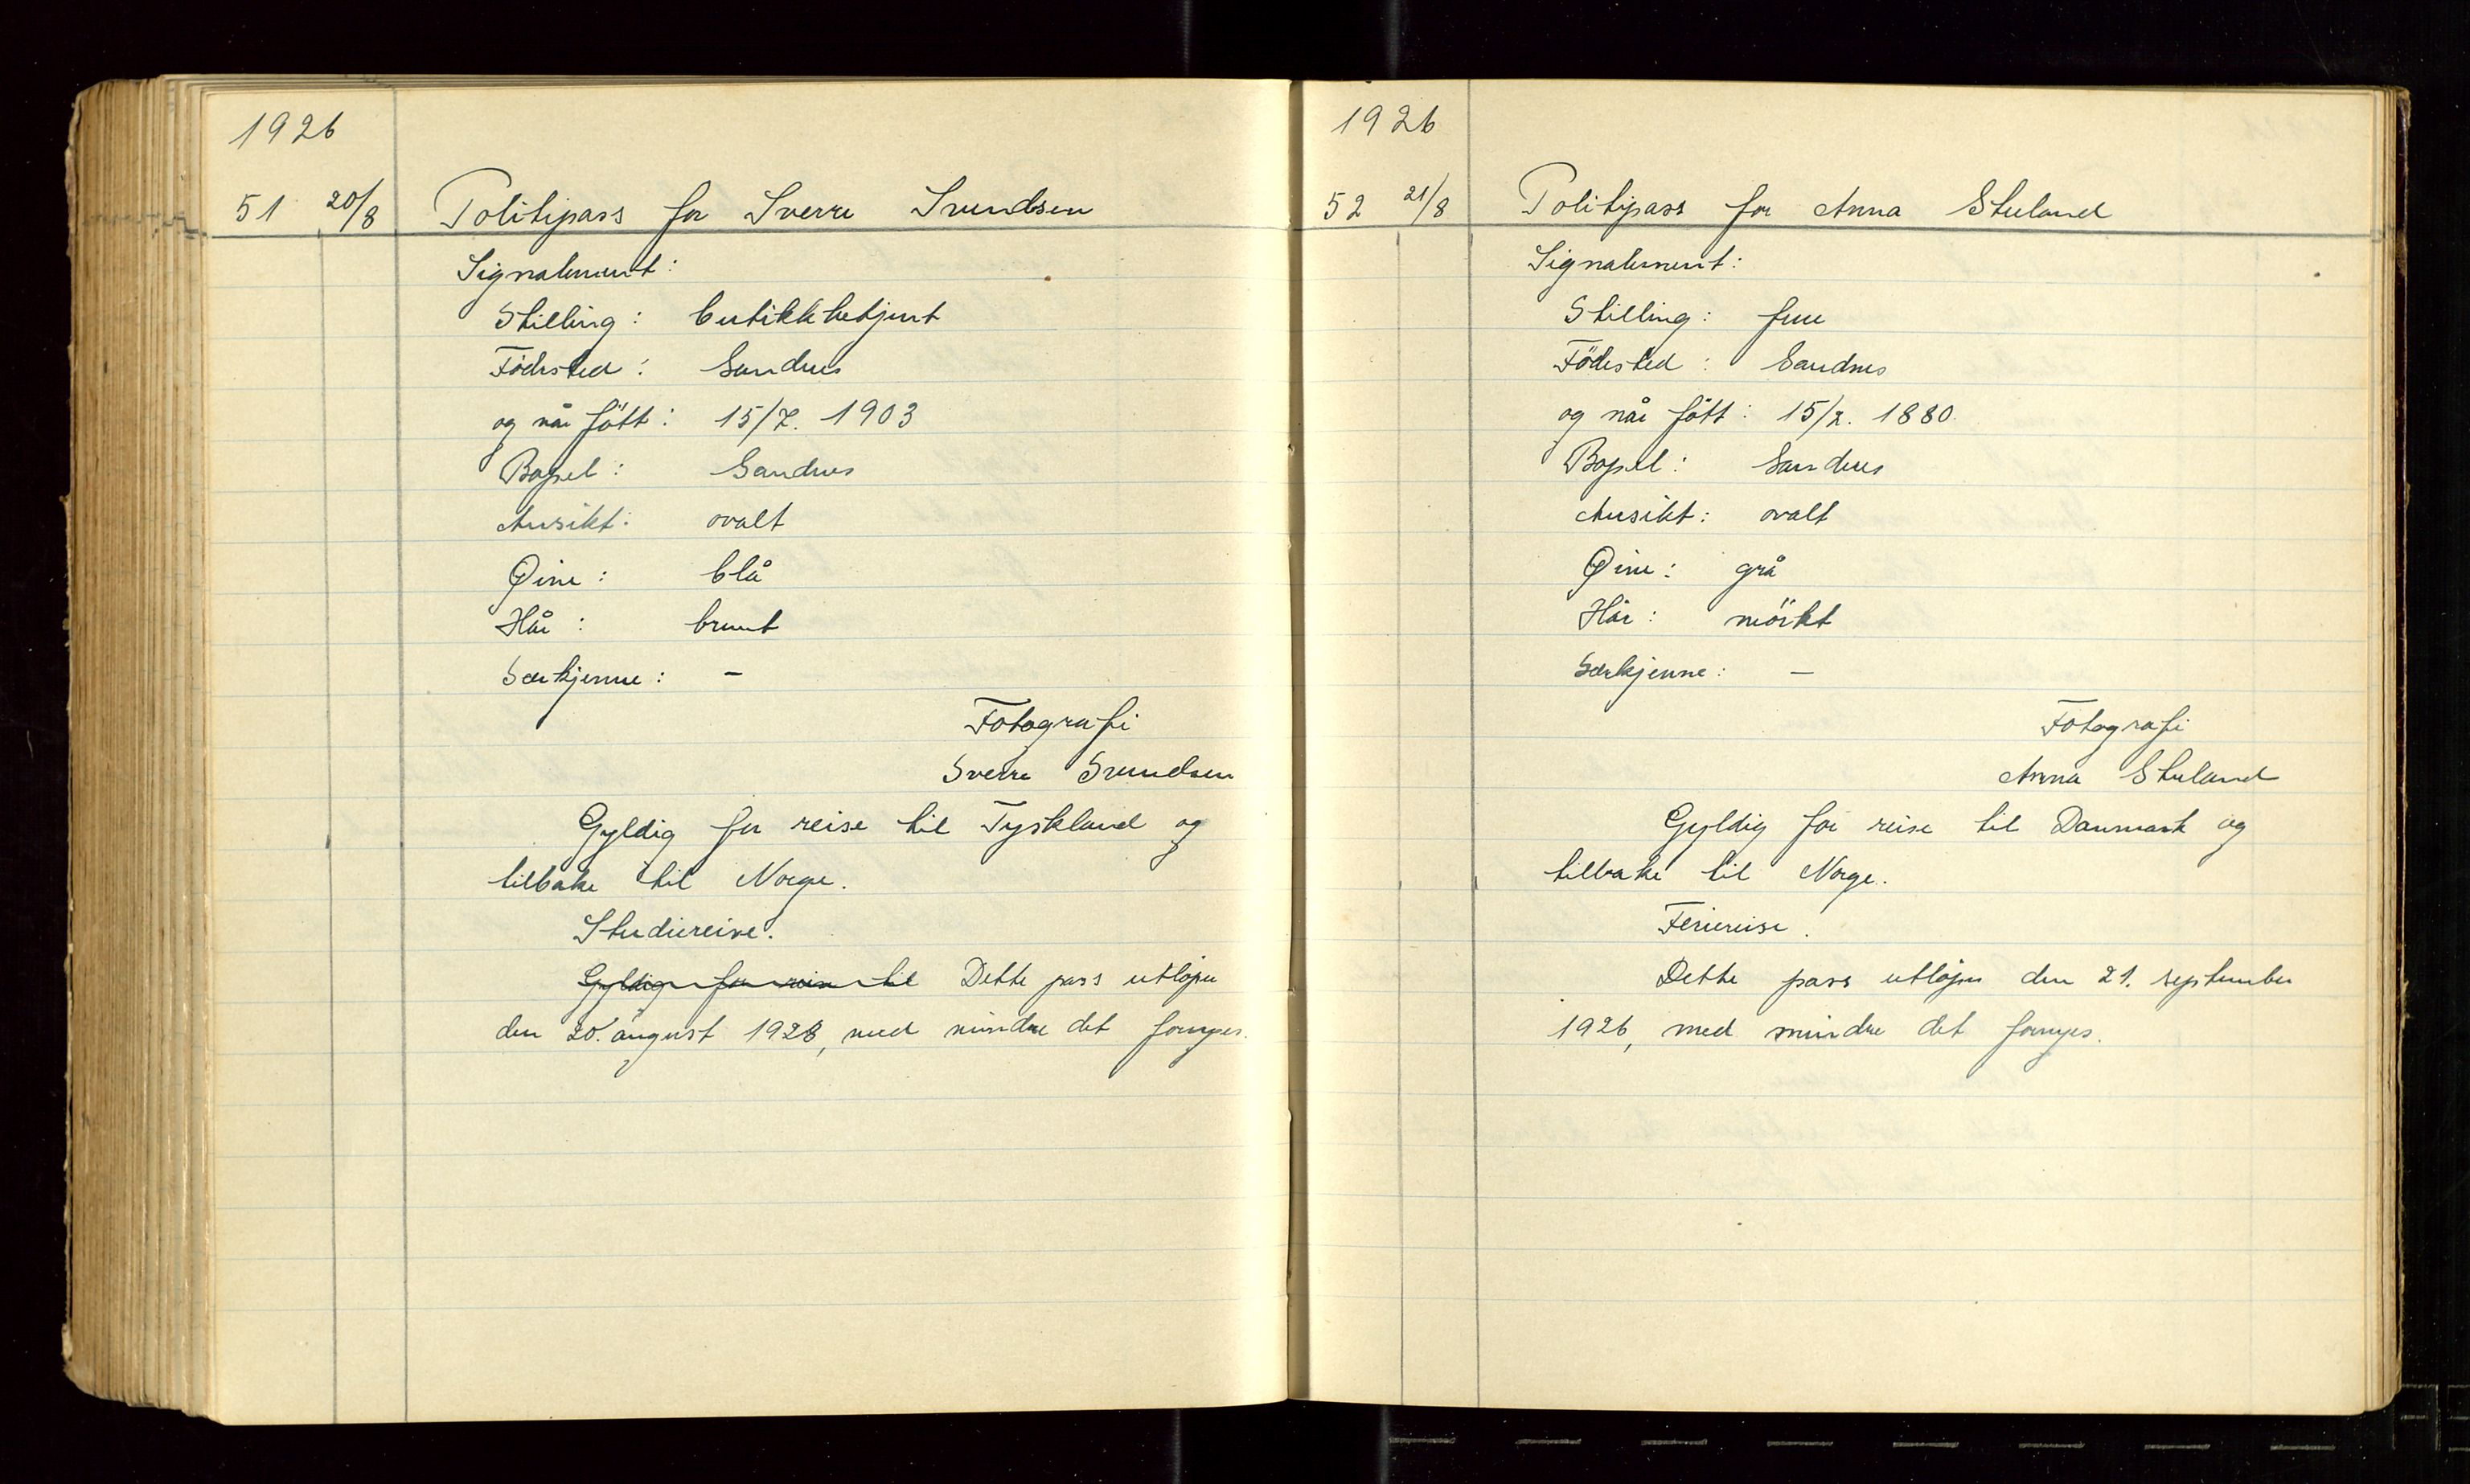 1926
51 20/8 Politipass for Sverre Svendsen
Signalement:
Stilling: butikkbetjent
Födested: Sandnes
og når fött: 15/7. 1903
Bopel: Sandnes
Ansikt: ovalt
Øine: blå
Hår: brunt
Særkjenne: –
Fotografi
Sverre Svendsen
Gyldig for reise til Tyskland og
tilbake til Norge.
Studiereise.
Gyldig for reise til Dette pass utlöper
den 20. august 1928, med mindre det fornyes.
1926
52 21/8 Politipass for Anna Stuland
Signalement:
Stilling: frue
Födested: Sandnes
og når fött: 15/2. 1880
Bopel: Sandnes
Ansikt: ovalt
Øine: grå
Hår: mörkt
Særkjenne: –
Fotografi
Anna Stuland
Gyldig for reise til Danmark og
tilbake til Norge.
Feriereise.
Dette pass utlöper den 21. september
1926, med mindre det fornyes.